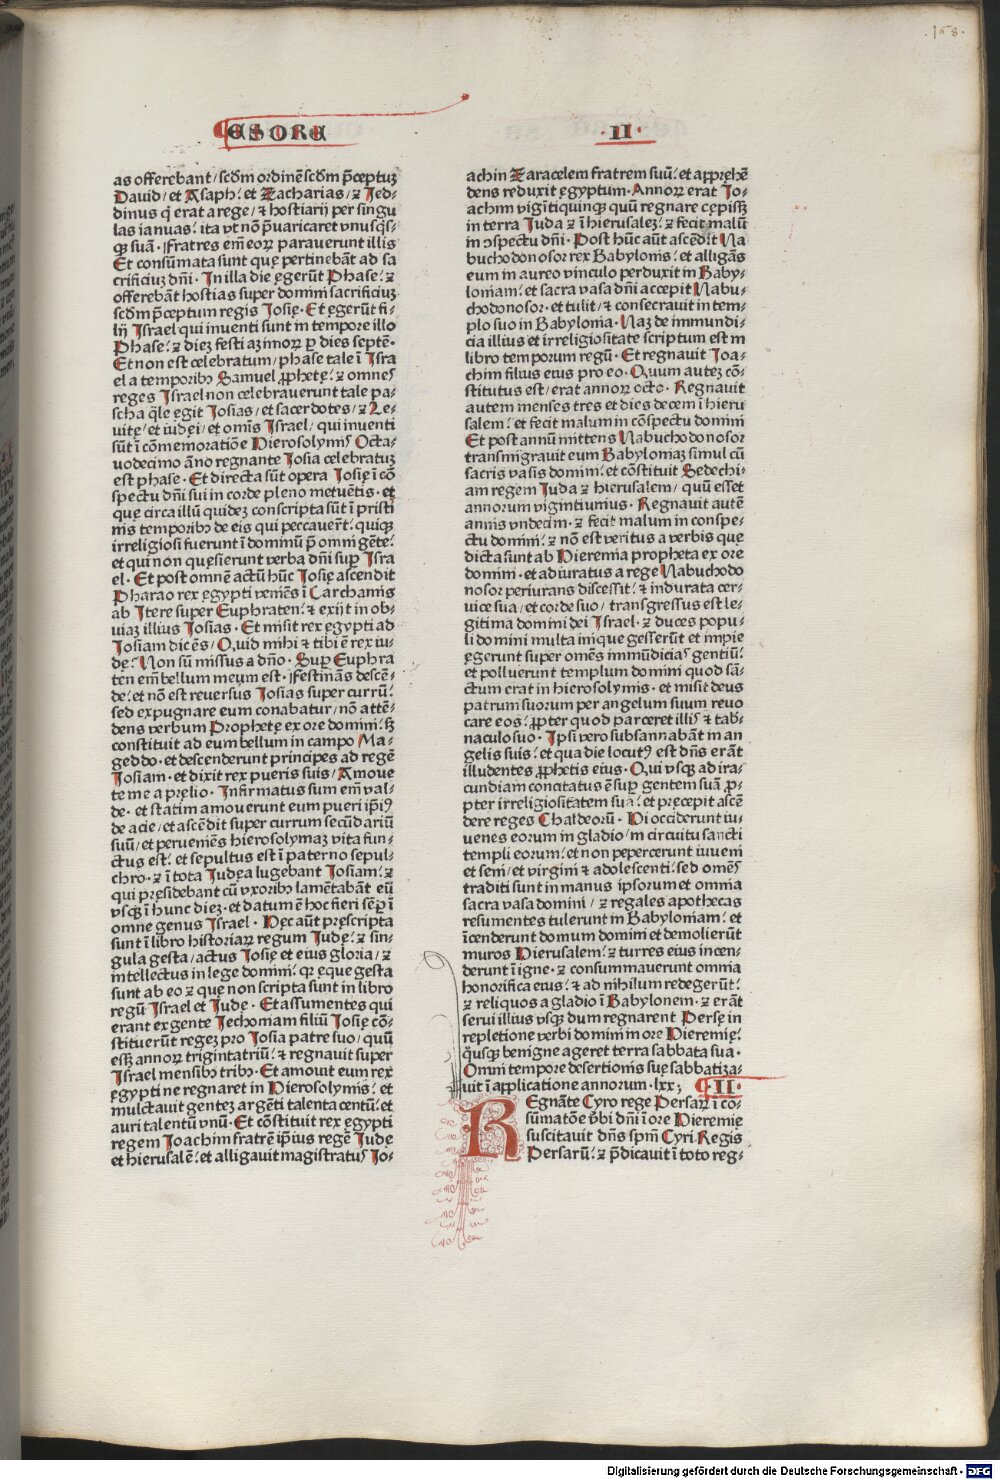 .168.
ESDRE
II
as offerebant/ scdm ordinē scdm p̄ceptuꝫ
David/ et Asaph: et Zacharias/ ⁊ Jed-
dinus q̇ erat a rege/ ⁊ hostiarij per singu
las ianuas: ita vt nō p̄uaricaret vnusq̇s-
qꝫ suā. Fratres em̄ eoꝝ parauerunt illis
Et consūmata sunt quę pertinebāt ad sa
crificiuꝫ dn̄i. In illa die ęgerūt Phase: ⁊
offerebāt hostias super domini sacrificiuꝫ
scdm p̄ceptum regis Josię. Et ęgerūt fi-
lij Israel qui inuenti sunt in tempore illo
Phase: ⁊ dieꝫ festi aꝫimoꝝ ꝑ dies septē.
Et non est celebratum/ phase tale ī Isra
el a temporibꝰ Samuel ꝓphetę: ⁊ omnes
reges Israel non celebrauerunt tale pa-
scha q̄le egit Josias/ et sacerdotes/ ⁊ Le-
uitę/ et iudęi/ et omīs Israel/ qui inuenti
sūt ī cōmemoratiōe Hierosolymis Octa-
uodecimo āno regnante Josia celebratuꝫ
est phase. Et directa sūt opera Josię ī cō
spectu dn̄i sui in corde pleno metuētis. et
quę circa illū quideꝫ conscripta sūt ī pristi
nis temporibꝰ de eis qui peccauer̄t: quiqꝫ
irreligiosi fuerunt ī dominū p̄ omni gēte:
et qui non quęsierunt verba dn̄i supꝑ Isra
el. Et post omnē actū hūc Josię ascendit
Pharao rex ęgypti veniēs ī Carchamis
ab Itere super Euphraten: ⁊ exijt in ob-
uiaꝫ illius Josias. Et misit rex ęgypti ad
Josiam dicēs/ Quid mihi ⁊ tibi ē rex iu-
dę: Non sū missus a dn̄o. Supꝑ Euphra
ten em̄ bellum meum est. Festināns descē-
de: et nō est reuersus Josias super currū:
sed expugnare eum conabatur/ nō attē-
dens verbum Prophetę ex ore domini: sꝫ
constituit ad eum bellum in campo Ma-
geddo. et descenderunt principes ad regē
Josiam. et dixit rex pueris suis/ Amoue
te me a pręlio. Infirmatus sum em̄ val-
de. et statim amouerunt eum pueri ip̄iꝰ
de acie/ et ascēdit super currum secūdariū
suū/ et perueniēs hierosolymaꝫ vita fun-
ctus est: et sepultus est ī paterno sepul-
chro. ⁊ ī tota Judęa lugebant Josiam: ⁊
qui pręsidebant cū vxoribꝰ lamētabāt eū
vsqꝫ ī hunc dieꝫ. et datum ē hoc fieri sēpꝑ ī
omne genus Israel. Hęc aūt pręscripta
sunt ī libro historiaꝝ regum Judę: ⁊ sin-
gula gesta/ actus Josię et eius gloria/ ⁊
intellectus in lege domini: qꝫ ęque gesta
sunt ab eo ⁊ quę non scripta sunt in libro
regū Israel et Judę. Et assumentes qui
erant ex gente Jechomam filiū Josię cō-
stituerūt regeꝫ pro Josia patre suo/ quū
esꝫ annoꝝ trigintatriū: ⁊ regnauit super
Israel mensibꝰ tribꝰ. Et amouit eum rex
ęgypti ne regnaret in Hierosolymis: et
mulctauit genteꝫ argēti talenta centū: et
auri talentū vnū. Et cōstituit rex ęgypti
regem Joachim fratrē ip̄ius regē Judę
et hierusalē: et alligauit magistratus Jo-
achin Zaracelem fratrem suū: et apprehē
dens reduxit ęgyptum. Annoꝝ erat Jo-
achim vigītiquinqꝫ quū regnare cępissꝫ
in terra Juda ⁊ ī hierusaleꝫ: ⁊ fecit malū
in ↄspectu dn̄i. Post hūc aūt ascēdit Na
buchodonosor rex Babylonis: et alligās
eum in aureo vinculo perduxit in Baby-
loniam: et sacra vasa dn̄i accepit Nabu-
chodonosor. et tulit/ ⁊ consecrauit in tem-
plo suo in Babylonia. Naꝫ de immundi-
cia illius et irreligiositate scriptum est in
libro temporum regū. Et regnauit Joa-
chim filius eius pro eo. Quum auteꝫ cō-
stitutus est/ erat annoꝝ octo. Regnauit
autem menses tres et dies decem ī hieru
salem: et fecit malum in cōspectu domini
Et post annū mittens Nabuchodonosor
transmigrauit eum Babyloniaꝫ simul cū
sacris vasis domini: et cōstituit Sedechi-
am regem Juda ⁊ hierusalem/ quū esset
annorum vigintiunius. Regnauit autē
annis vndecim. ⁊ fecit malum in conspe-
ctu domini: ⁊ nō est veritus a verbis quę
dicta sunt ab Hieremia propheta ex ore
domini. et adiuratus a rege Nabuchodo
nosor periurans discessit: ⁊ indurata cer-
uice sua/ et corde suo/ transgressus est le-
gitima domini dei Israel. ⁊ duces popu-
li domini multa inique gesserūt et impie
ęgerunt super omēs immūdicias gentiū:
et polluerunt templum domini quod sā-
ctum erat in hierosolymis. et misit deus
patrum suorum per angelum suum reuo
care eos: ꝓpter quod parceret illis ⁊ tab̄-
naculo suo. Ipsi vero subsannabāt in an
gelis suis: et qua die locutꝰ est dn̄s erāt
illudentes ꝓphetis eius. Qui vsqꝫ ad ira-
cundiam concitatus ē supꝑ gentem suā ꝓ-
pter irreligiositatem suā: et pręcepit ascē
dere reges Chaldeorū. Hi occiderunt iu-
uenes eorum in gladio/ in circuitu sancti
templi eorum: et non pepercerunt iuueni
et seni/ et virgini ⁊ adolescenti: sed omēs
traditi sunt in manus ipsorum et omnia
sacra vasa domini/ ⁊ regales apothecas
resumentes tulerunt in Babyloniam: et
īcenderunt domum domini et demolierūt
muros Hierusalem: ⁊ turres eius incen-
derunt ī igne. ⁊ consummauerunt omnia
honorifica eius: ⁊ ad nihilum redegerūt:
⁊ reliquos a gladio ī Babylonem. ⁊ erāt
serui illius vsqꝫ dum regnarent Persę in
repletione verbi domini in ore Hieremię:
q̇usqꝫ benigne ageret terra sabbata sua.
Omni tempore desertionis suę sabbatiza-
uit ī applicatione annorum.lxx; II.
REgnāte Cyro rege Persaꝝ ī co-
sūmatōe v̄bi dn̄i ī ore Hieremię
suscitauit dn̄s spm̄ Cyri Regis
Persarū: ⁊ p̄dicauit ī toto reg-
Digitalisierung gefördert durch die Deutsche Forschungsgemeinschaft - DFG